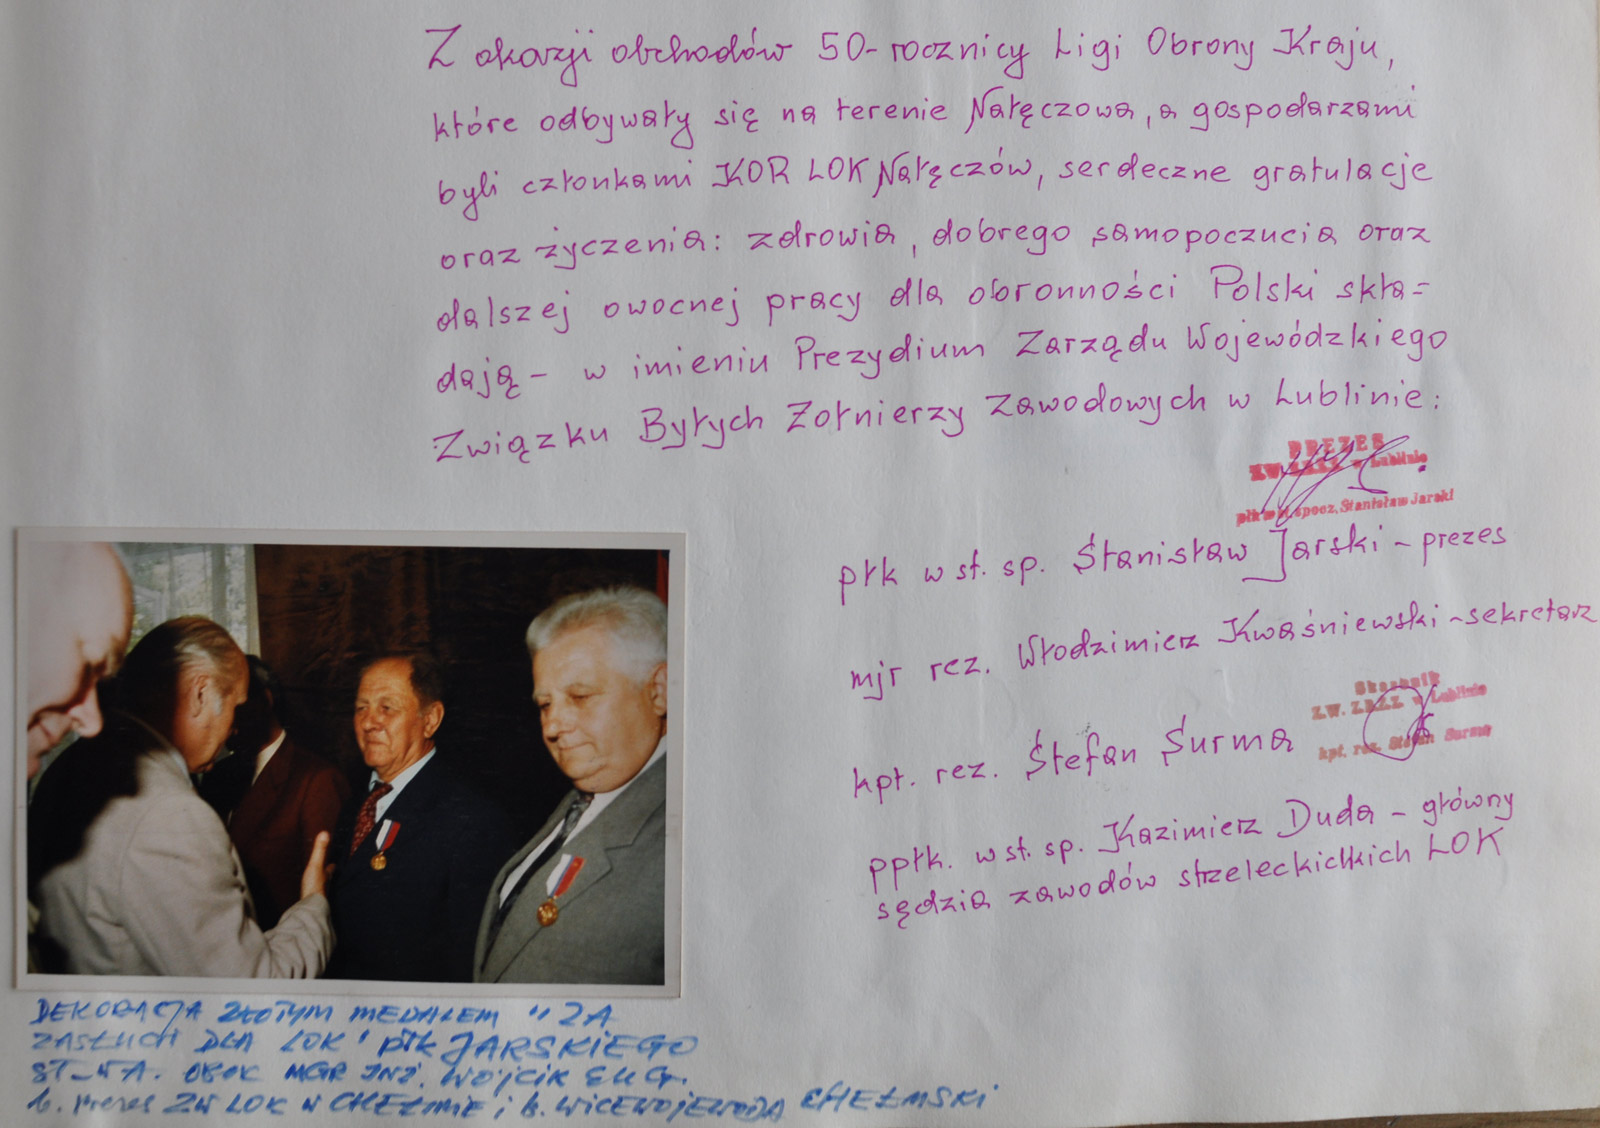 Z okazji obchodów 50-rocznicy Ligi Obrony Kraju,
które odbywały się na terenie Nałęczowa, a gospodarzami
byli członkami KOR LOK Nałęczów, serdeczne gratulacje
oraz życzenia: zdrowia, dobrego samopoczucia oraz
dalszej owocnej pracy dla obronności Polski skła=
dają - w imieniu Prezydium Zarządu Wojewódzkiego
Związku Byłych Żołnierzy Zawodowych w Lublinie:
PREZES
w Lublinie
spocz. Stanisław Jarski
płk w st. sp. Stanisław Jarski - prezes
mjr rez. Włodzimierz Kwaśniewski - sekretarz
Skarbnik
ZW. ZBZZ w Lublinie
kpt. rez. Stefan Surma
kpt. rez. Stefan Surma
ppłk. w st. sp. Kazimierz Duda - główny
sędzia zawodów strzeleckichkich LOK
DEKORACJA ZŁOTYM MEDALEM "ZA
ZASŁUGI DLA LOK" płk JARSKIEGO
ST-WA. OBOK MGR INŻ. WÓJCIK EUG.
b. Prezes ZW LOK W CHEŁMIE i b. WICEWOJEWODA CHEŁMSKI